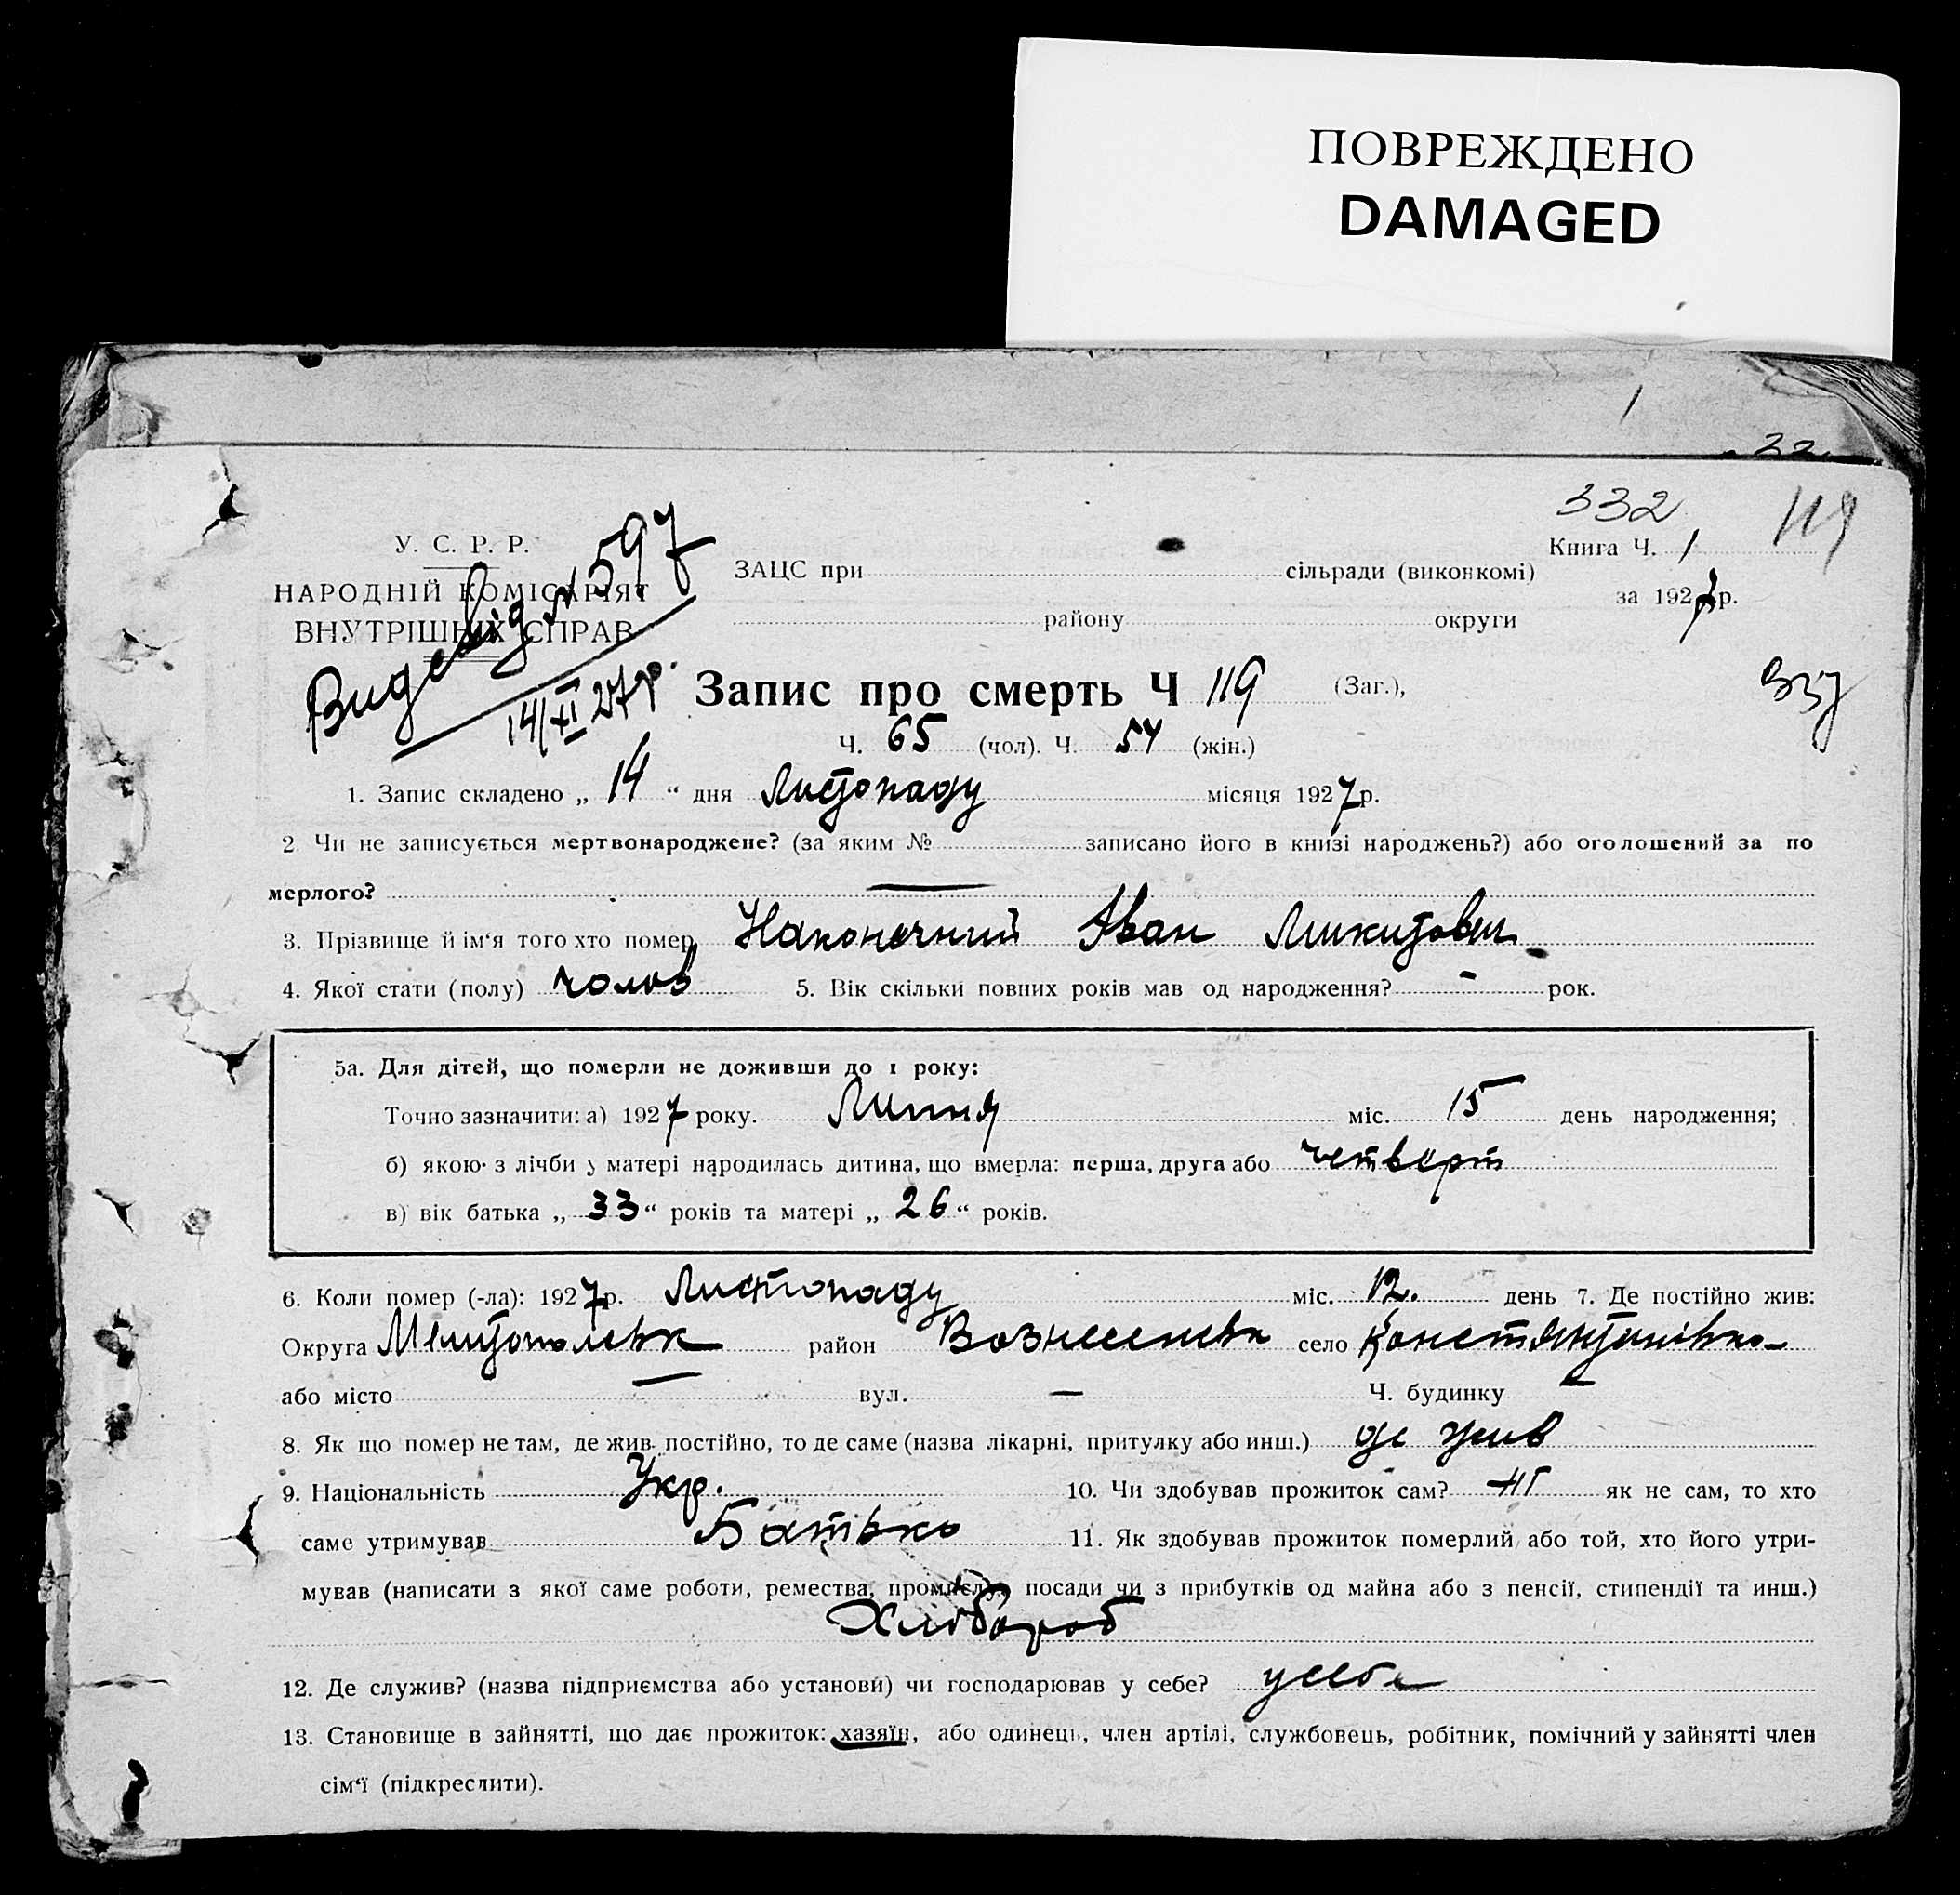 ПОВРЕЖДЕНО
DAMAGED
1
22
332
119
У. С. Р. Р.
НАРОДНІЙ КОМІСАРІЯТ
ВНУТРІШНІХ СПРАВ
Вид свід № 597
14/XI 27 р.
ЗАЦС при сільради (виконкомі)
району округи
Книга Ч. 1
за 1927 р.
337
Запис про смерть Ч 119 (Заг.),
Ч. 65 (чол). Ч. 54 (жін.)
1. Запис складено „ 14 “ дня Листопаду місяця 1927 р.
2 Чи не записується мертвонароджене? (за яким № записано його в книзі народжень?) або оголошений за по
мерлого? —
3. Прізвище й ім‘я того хто помер Наконечний Іван Микитович
4. Якої стати (полу) чолов 5. Вік скільки повних років мав од народження? - рок.
5а. Для дітей, що померли не доживши до 1 року:
Точно зазначити: а) 1927 року. Липня міс. 15 день народження;
б) якою з лічби у матері народилась дитина, що вмерла: перша, друга або четверт
в) вік батька „ 33 “ років та матері „ 26 “ років.
6. Коли помер (-ла): 1927 р. Листопаду міс. 12. день 7. Де постійно жив:
Округа Мелитопольськ район Вознесенськ село Константинівка
або місто — вул. — Ч. будинку —
8. Як що помер не там, де жив постійно, то де саме (назва лікарні, притулку або инш.) де жив
9. Національність Укр. 10. Чи здобував прожиток сам? ні як не сам, то хто
саме утримував Батько 11. Як здобував прожиток померлий або той, хто його утри-
мував (написати з якої саме роботи, ремества, промислу, посади чи з прибутків од майна або з пенсії, стипендії та инш.)
Хлібороб
12. Де служив? (назва підприємства або установи) чи господарював у себе? у себе
13. Становище в зайнятті, що дає прожиток: хазяїн, або одинець, член артілі, службовець, робітник, помічний у зайнятті член
сім‘ї (підкреслити).